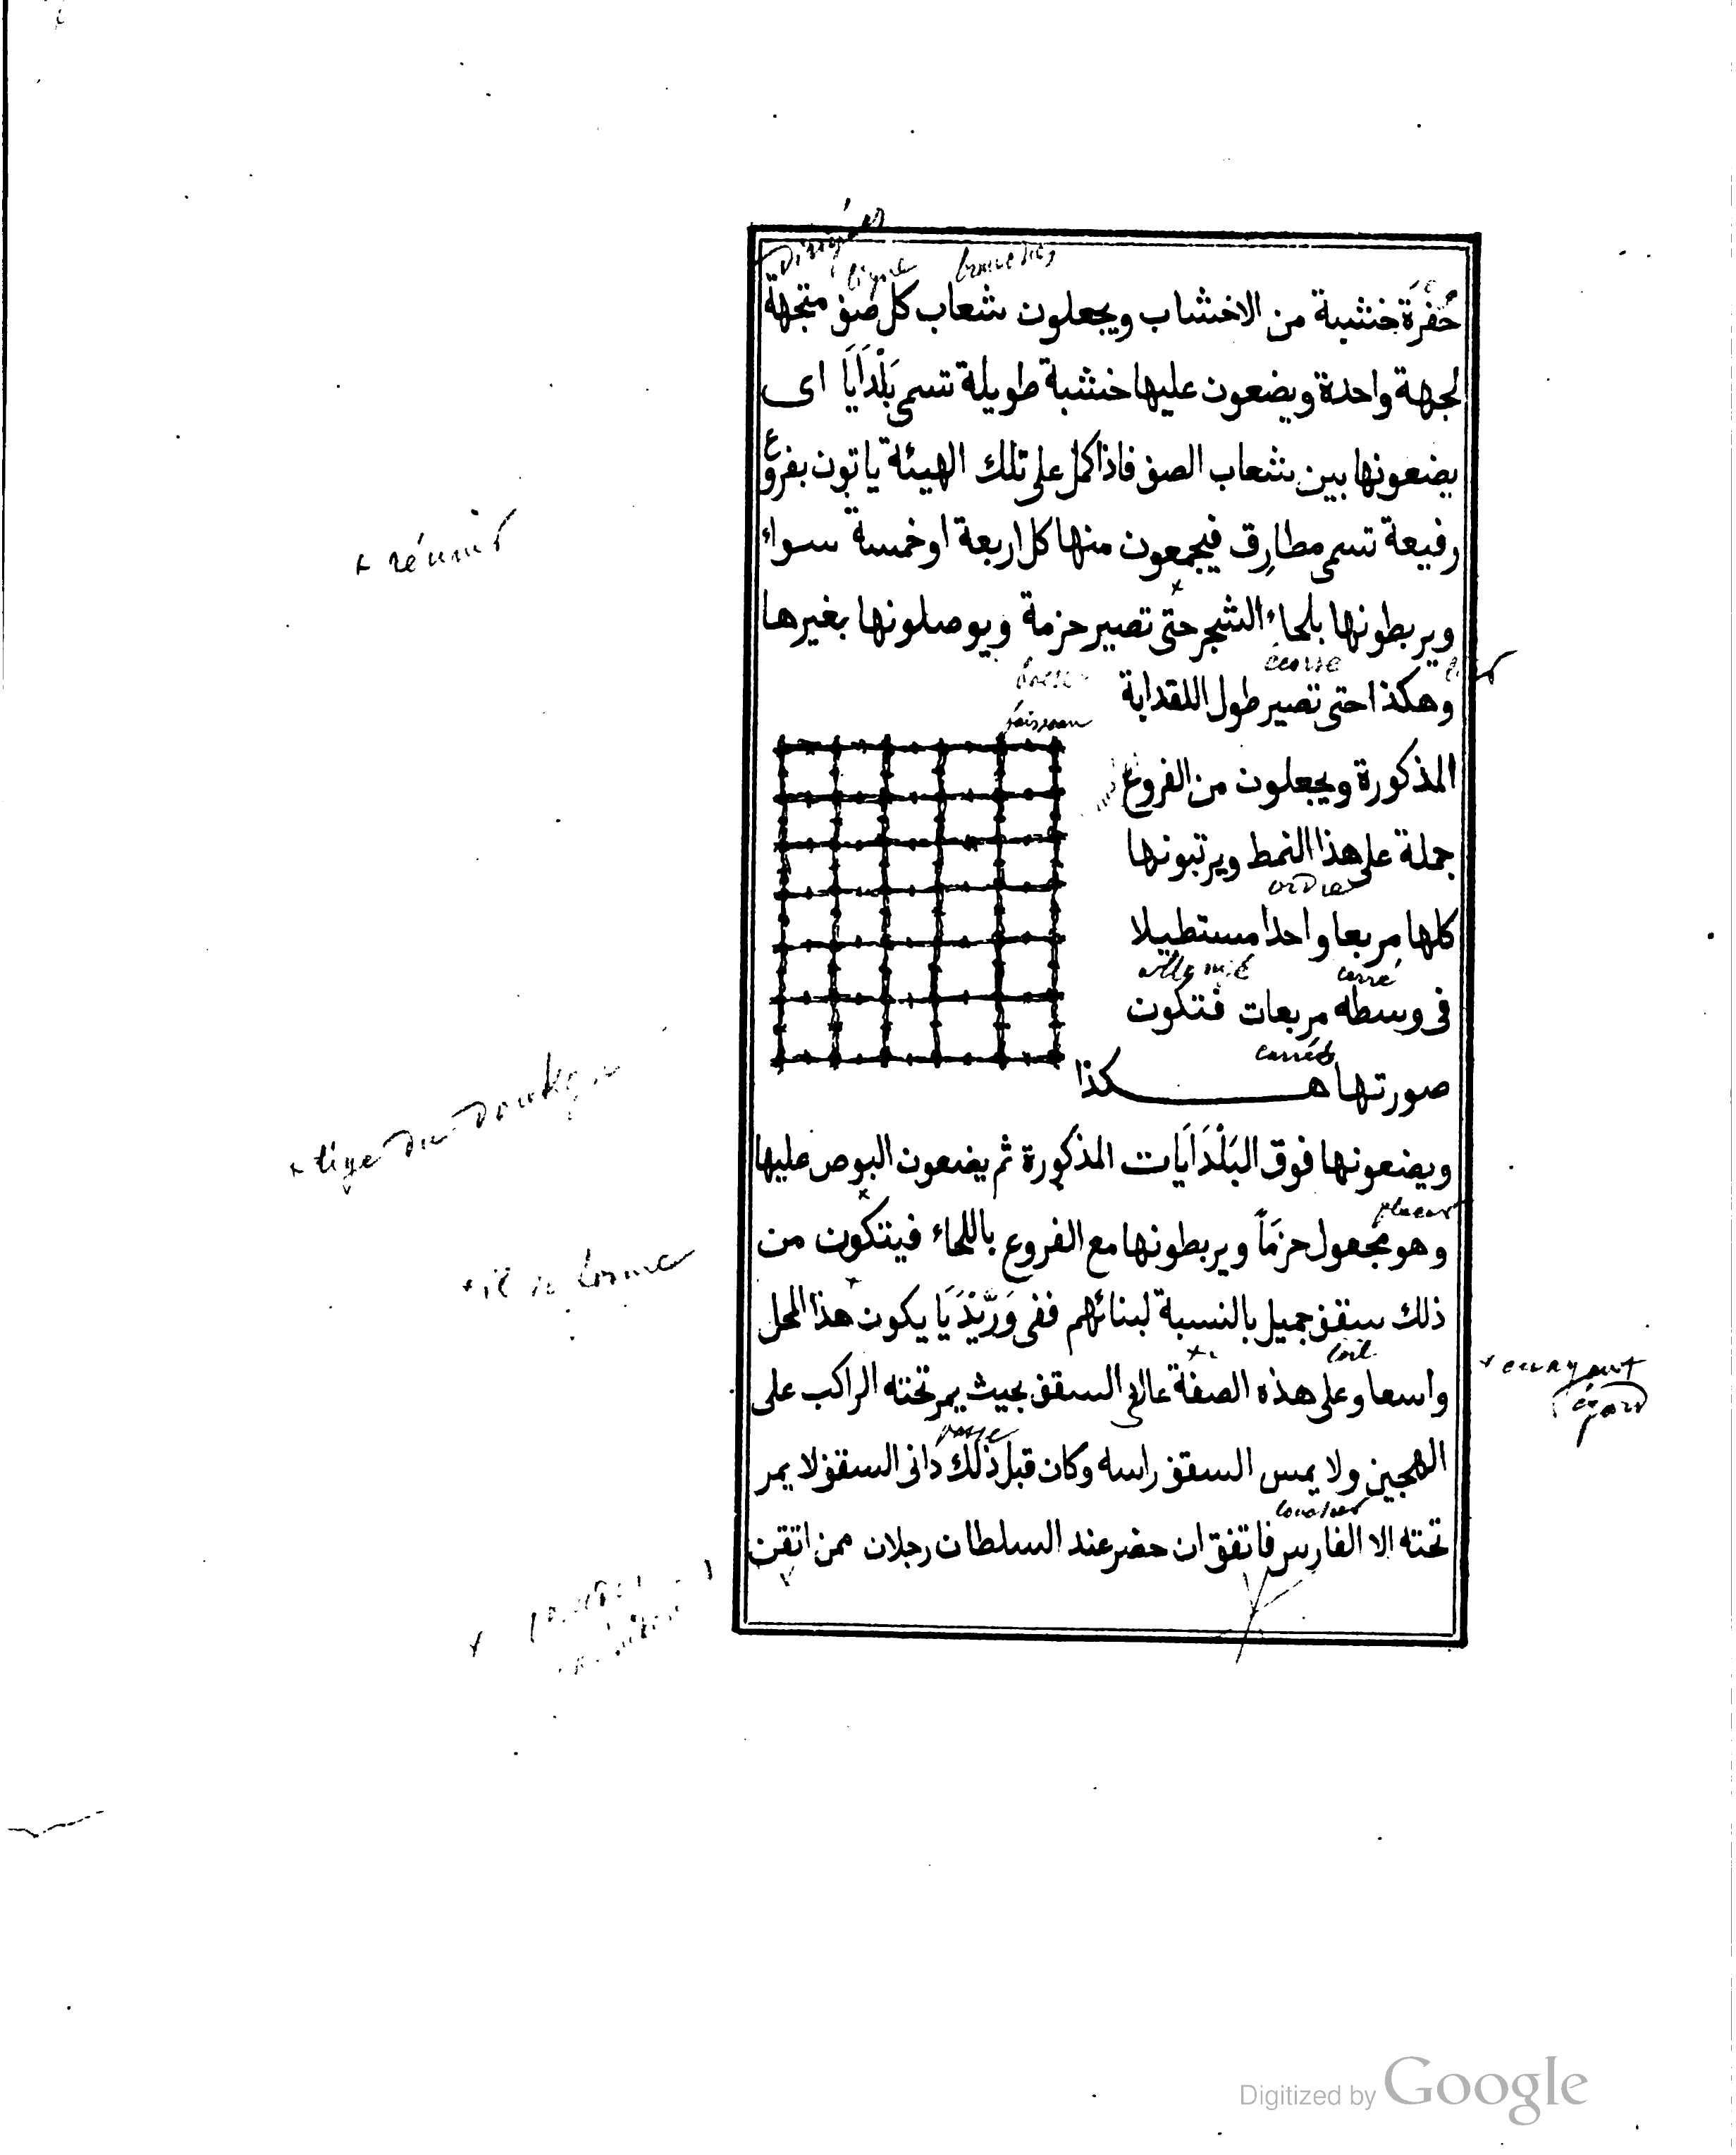 حُفرَة خشبة من الاخشاب ويجعلون شعاب كل صف متجهة
لجهة واحدة ويضعون عليها خشبة طويلة تسمى بَلْدَايَا اى
يضعونها بين شعاب الصف فاذا كمل على تلك الهيئة ياتون بفروع
رفيعة تسمى مطارِق فيجمعون منها كل اربعة او خمسة سواء
ويربطونها بلحاء الشجر حتى تصير حزمة ويوصلونها بغيرها
وهكذا حتى تصير طول اللقدابة
المذكورة ويجعلون من الفروع
جملة على هذا النمط ويرتبونها
كلها مربعا واحدا مستطيلا
فى وسطه مربعات فتكون
صورتها هكذا
ويضعونها فوق البَلْدَايَات المذكورة ثم يضعون البوص عليها
وهو مجعول حزَمًا ويربطونها مع الفروع باللحاء فيتكون من
ذلك سقف جميل بالنسبة لبنائهم ففى وَرَّيْدَيَا يكون هذا المحل
واسعا وعلى هذه الصفة عالى السقف بحيث يمر تحته الراكب على
الهجين ولا يمس السقف راسه وكان قبل ذلك دانى السقف لا يمر
تحته الا الفارس فاتفق ان حضر عند السلطان رجلان ممن اتقن
ligne branches
+ réunir
écorce
faisceau
ordre
carré
carrés
+ tige du
placer
+ il se forme
toit
+ en ayant
égard
passe
toucher
Digitized by Google